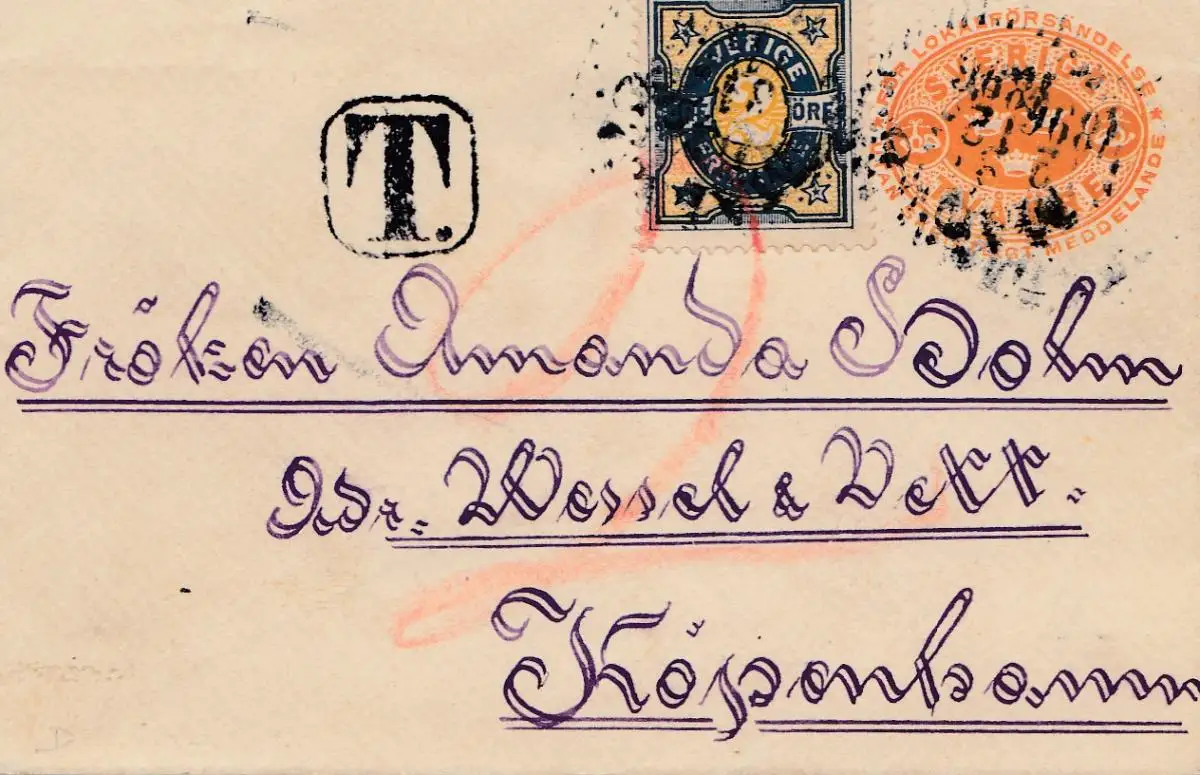 SVERIGE
ÖRE
FÖR LOKALFÖRSÄNDELSE
SVERIGE
MEDDELANDE
T.
Fröken Amanda Holm
Adr. Wessel & Vett.
Köpenhamn